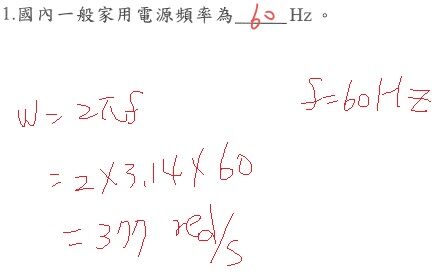 1.國內一般家用電源頻率為60Hz。
f=60HZ
W=2πf
=2×3.14×60
=377 red/s